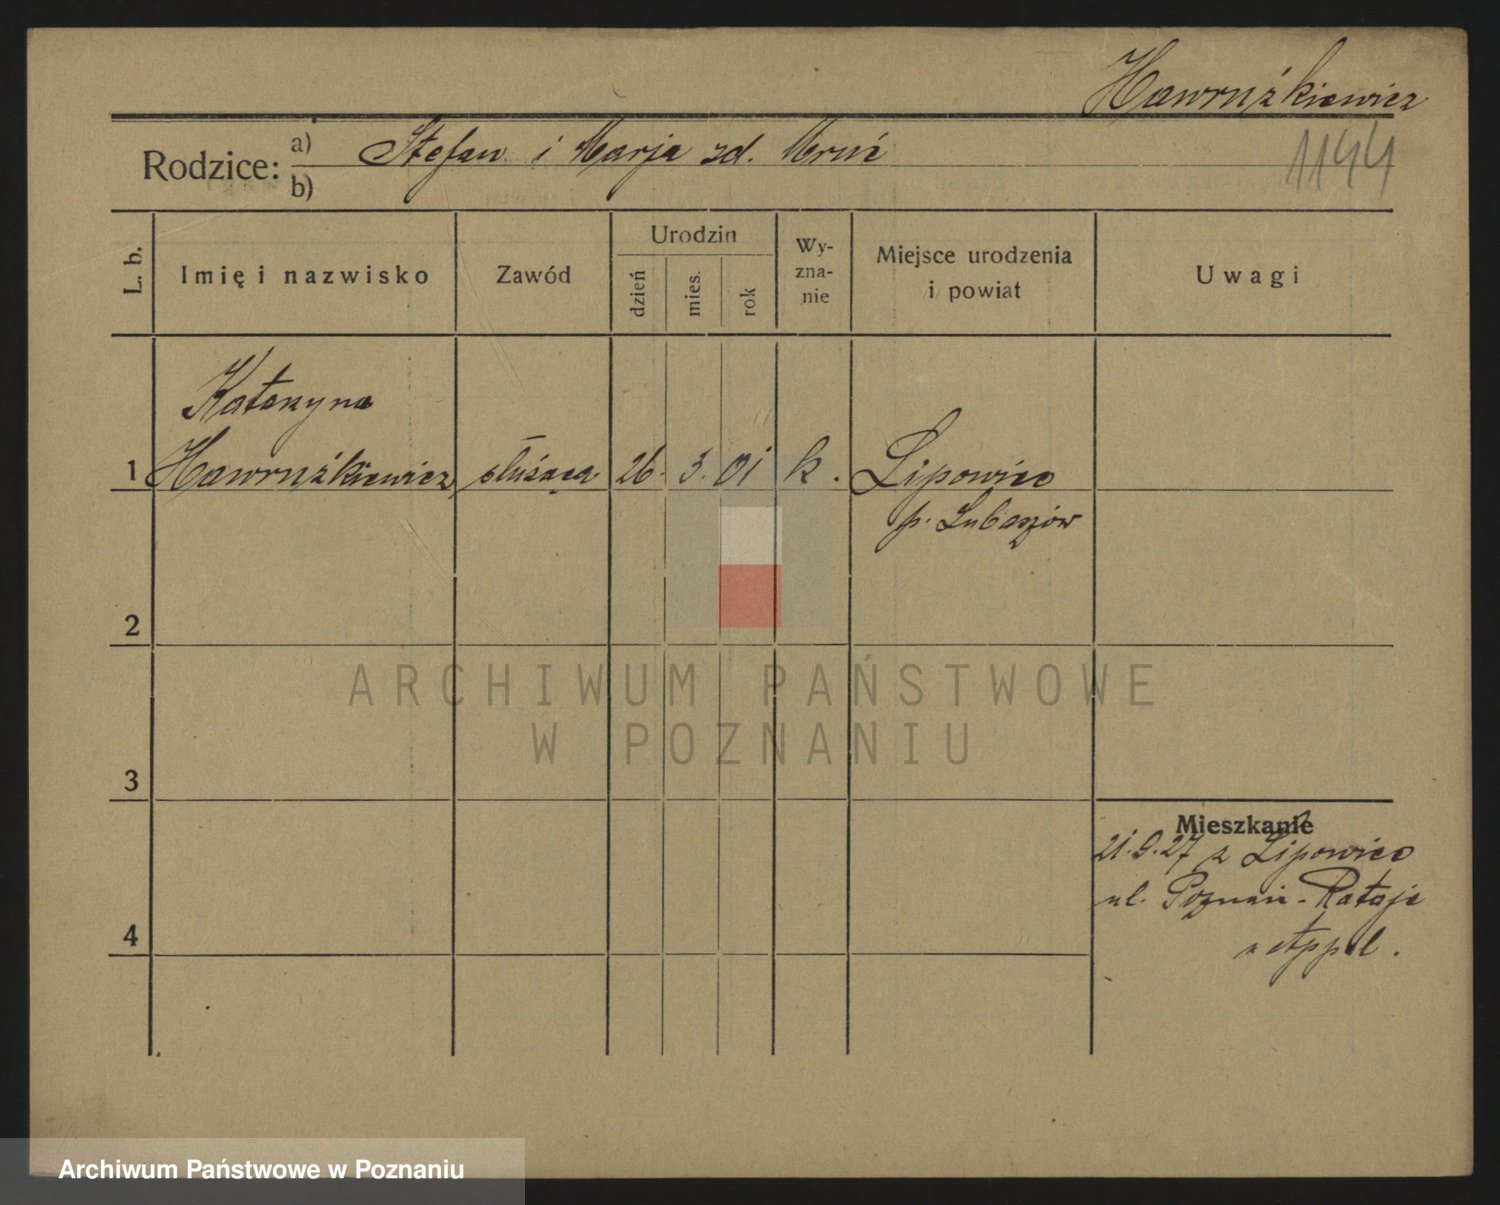 Hawruźkiewicz
1144
Rodzice: a) Stefan i Marja zd. Mruć
b)
L. b.
Imię i nazwisko
Zawód
Urodzin
dzień
mies.
rok
Wy-
zna-
nie
Miejsce urodzenia
i powiat
Uwagi
Katarzyna
1 Hawruźkiewicz służąca 26. 3. 01 k. Lipowiec
p. Lubaszów
2
3
4
Mieszkanie
21.9.27 z Lipowiec
ul. Poznań-Rataje
u Appel.
ARCHIWUM PAŃSTWOWE
W POZNANIU
Archiwum Państwowe w Poznaniu